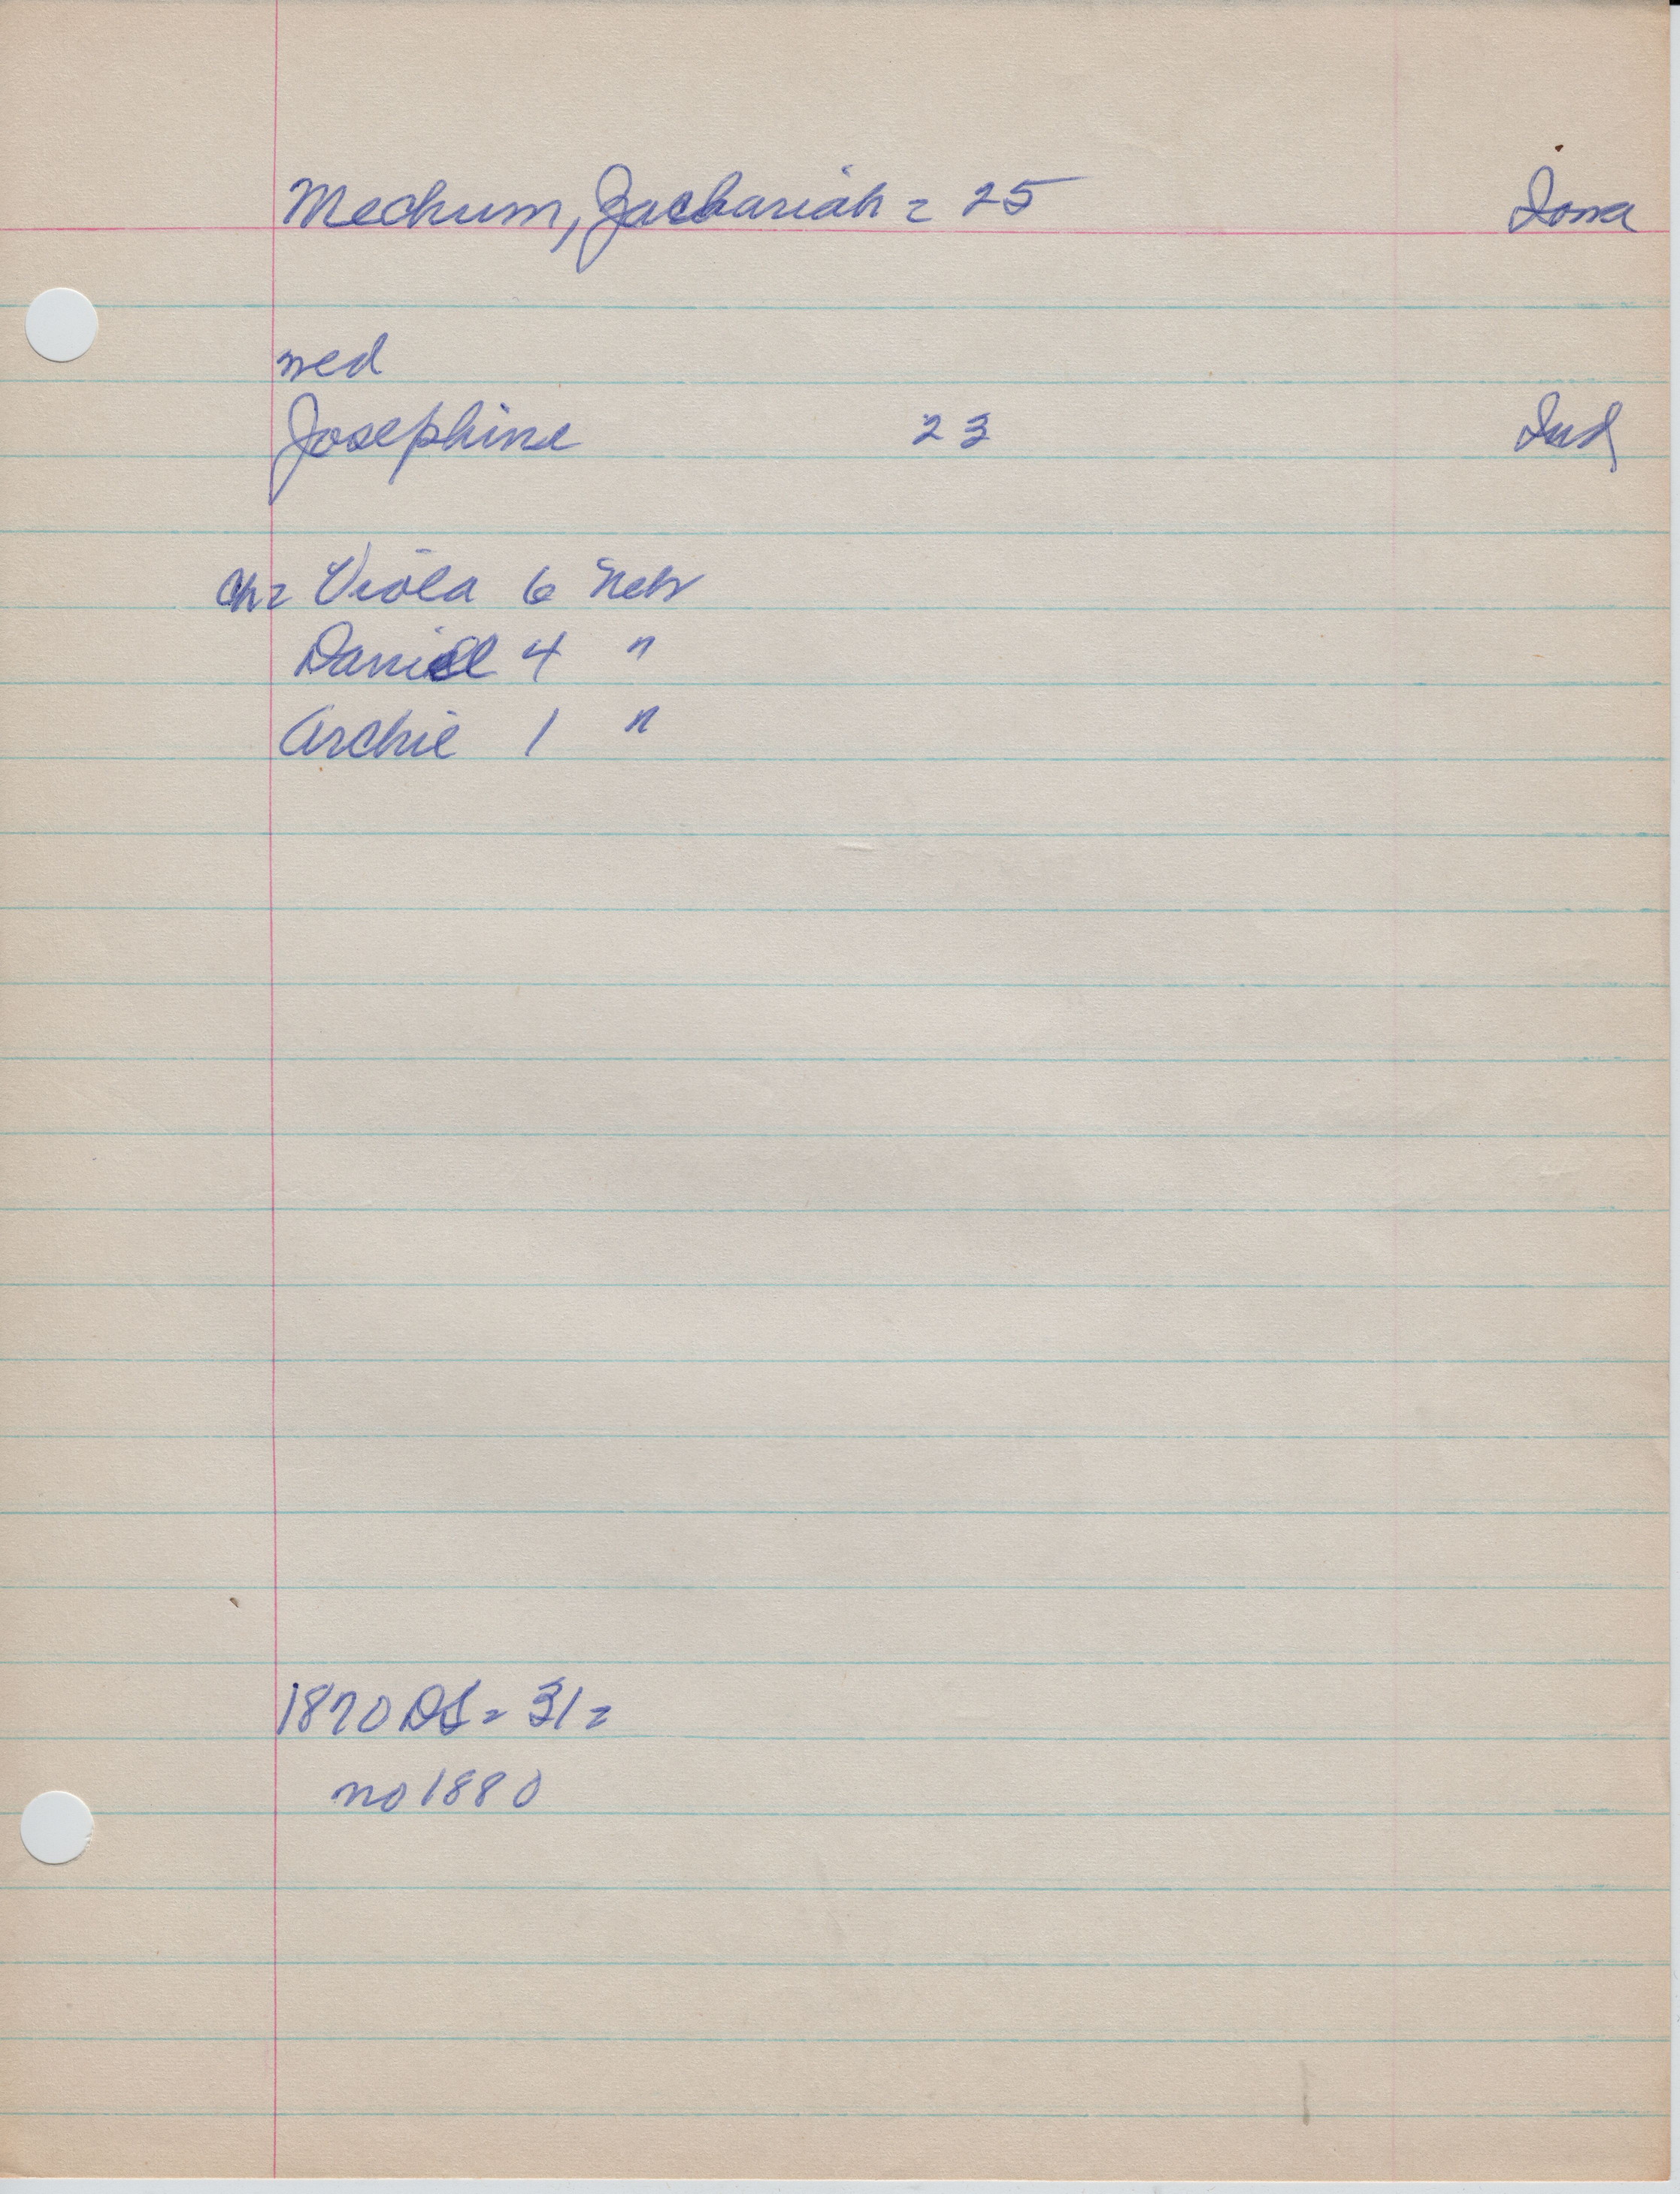 Mechum, Zachariah = 25 Iowa
wed
Josephine 23 Ind
Ch = Viola 6 Neb
Daniel 4 "
Archie 1 "
1870 DS = 31 =
no 1880